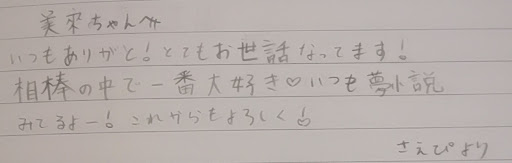 美来ちゃんへ
いつもありがと!とてもお世話なってます!
相棒の中で一番大好き♡いつも夢小説
みてるよー!これからもよろしく!
さえぴより